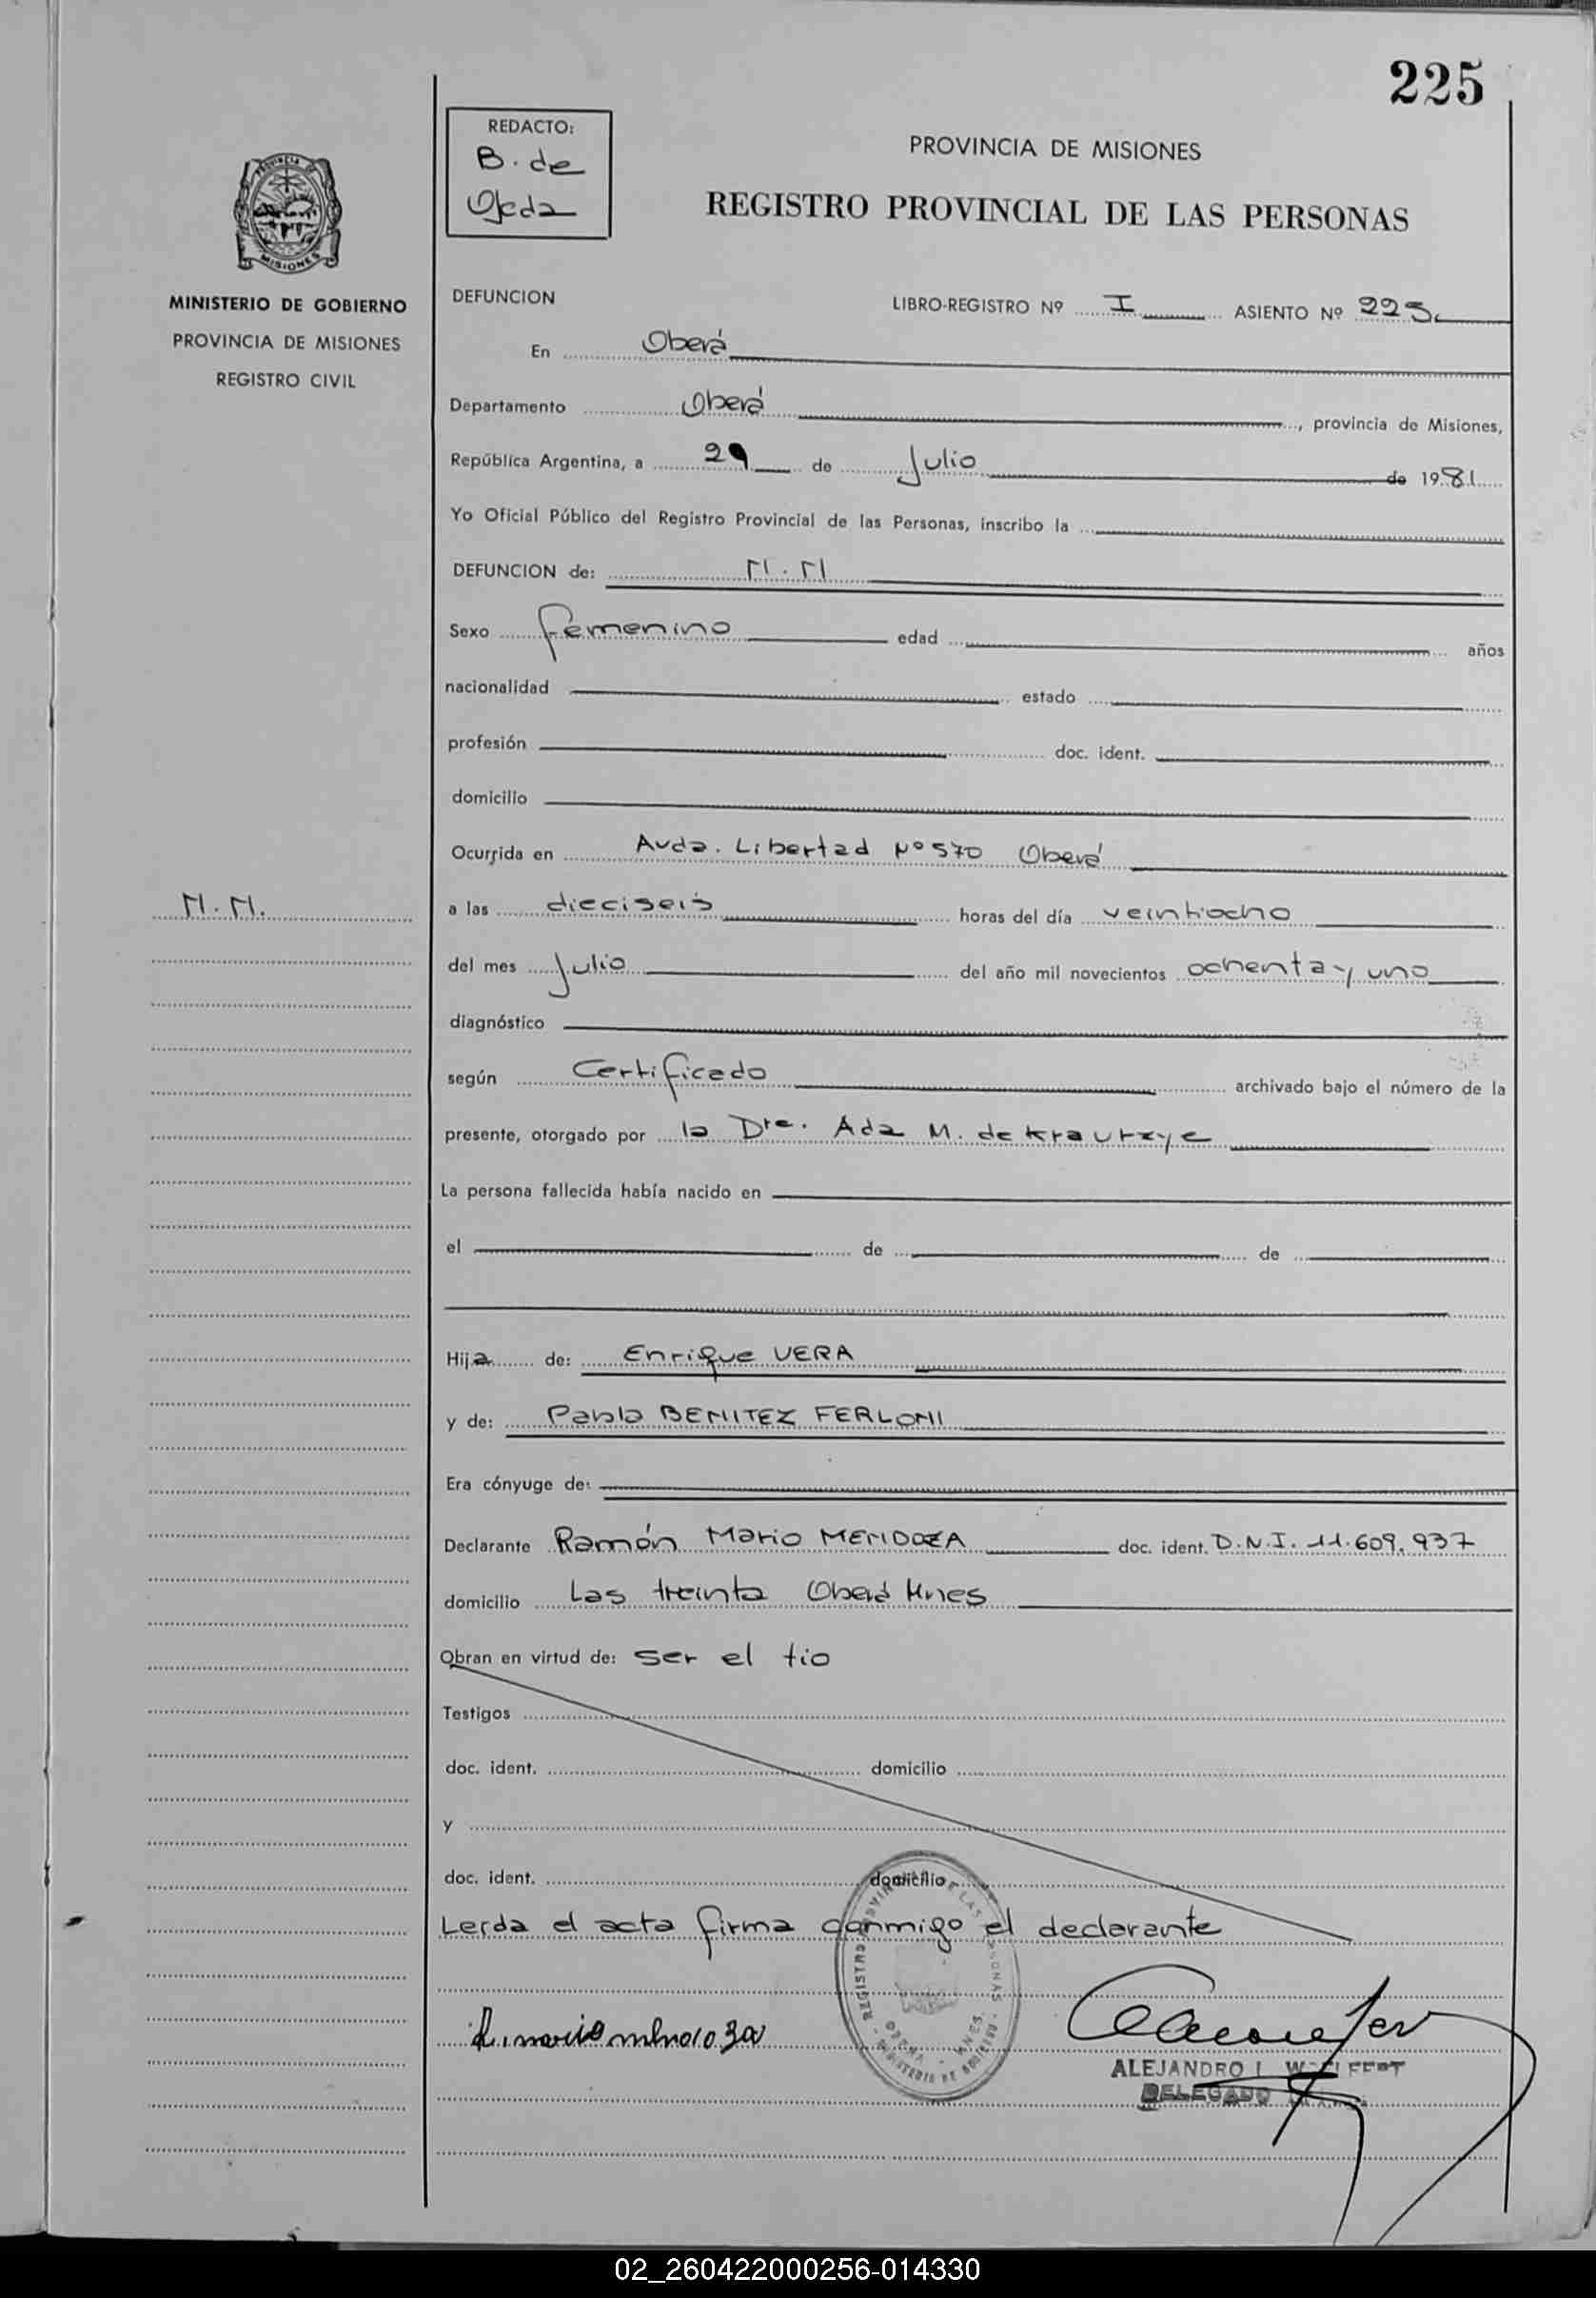 225
REDACTO:
B. de
Ojeda
PROVINCIA DE MISIONES
REGISTRO PROVINCIAL DE LAS PERSONAS
MISIONES
MINISTERIO DE GOBIERNO
PROVINCIA DE MISIONES
REGISTRO CIVIL
DEFUNCION
LIBRO-REGISTRO Nº I ASIENTO Nº 225
En Oberá
Departamento Oberá, provincia de Misiones,
República Argentina, a 29 de Julio de 1981
Yo Oficial Público del Registro Provincial de las Personas, inscribo la
DEFUNCION de: N.N
Sexo femenino edad años
nacionalidad estado
profesión doc. ident.
domicilio
Ocurrida en Avda. Libertad Nº 570 Oberá
N.N.
a las dieciseis horas del día veintiocho
del mes Julio del año mil novecientos ochenta y uno
diagnóstico
según Certificado archivado bajo el número de la
presente, otorgado por la Dra. Ada M. de
La persona fallecida había nacido en
el de de
Hija de: Enrique VERA
y de: Pabla BENITEZ FERLONI
Era cónyuge de:
Declarante Ramón Mario MENDOZA doc. ident. D.N.I. 11.609.937
domicilio Las treinta Oberá Mnes
Obran en virtud de: ser el tio
Testigos
doc. ident. domicilio
y
doc. ident. domicilio
Leída el acta firma conmigo el declarante
R. mario mendoza
ALEJANDRO
DELEGADO
02_260422000256-014330